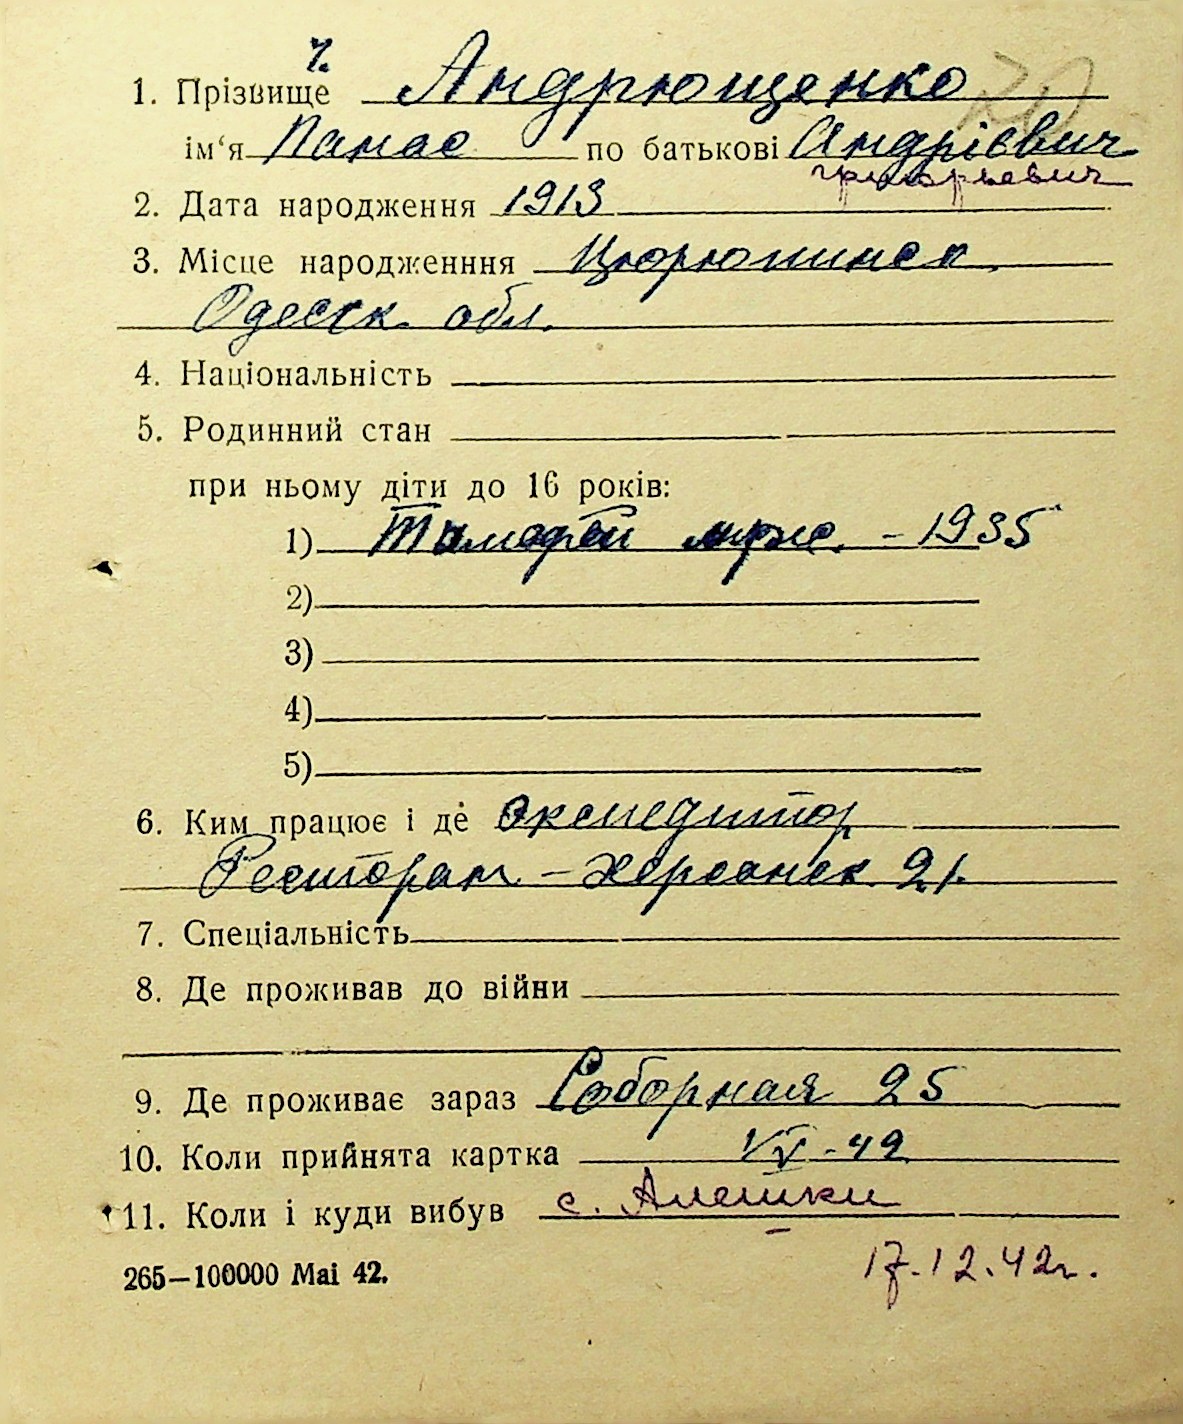 ч.
1. Прізвище Андрющенко
ім‘я Панас по батькові Андрієвич
григорьевич
2. Дата народження 1913
3. Місце народженння Цюрюпинск
Одесск. обл.
4. Національність
5. Родинний стан
при ньому діти до 16 років:
1) Тимофей - 1935
2)
3)
4)
5)
6. Ким працює і де экспедитор
Ресторан – Херсонск. 21.
7. Спеціальність
8. Де проживав до війни
9. Де проживає зараз Соборная 25
10. Коли прийнята картка
11. Коли і куди вибув с. Алешки
265—100000 Mai 42.
17.12.42г.